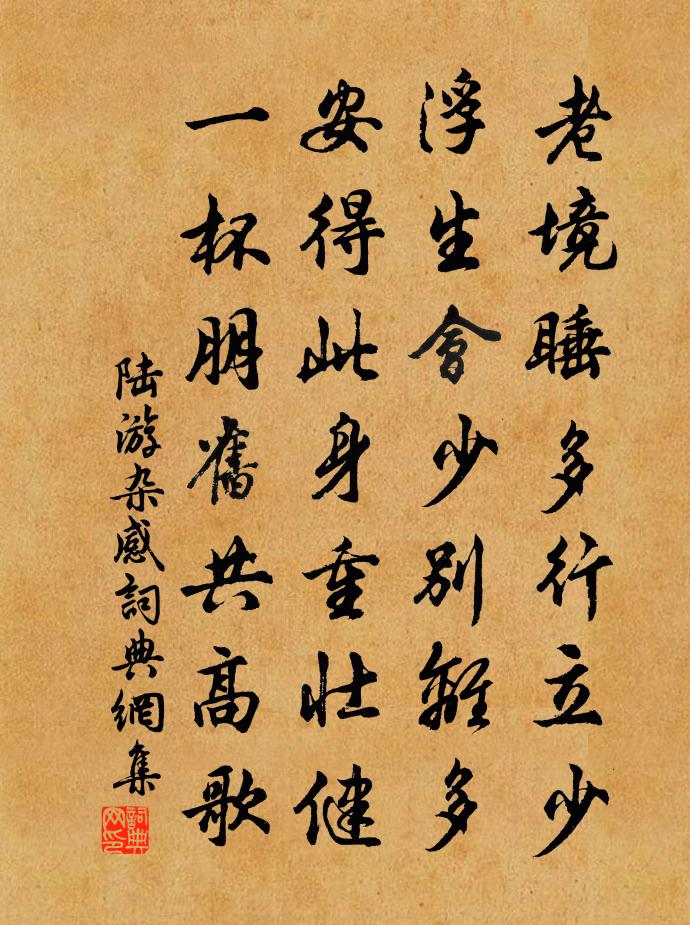 老境睡多行立少
浮生會少別離多
安得此身重壮健
一杯朋舊共高歌
陆游杂感詞典網集
詞典网印